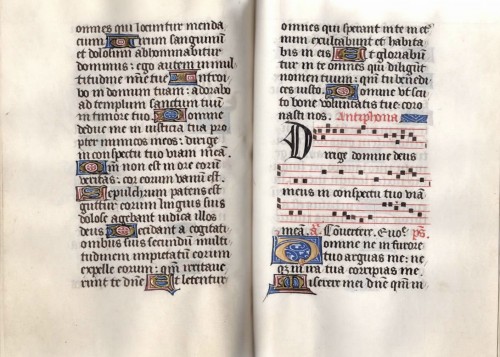 omnes qui locuntur menda
cium Virum sanguinu
et dolosum abhominabitur
dominus: ego autem in mul
titudine mie tue Introi
bo in domum tuam: adorabo
ad templum sanctum tuu
in timore tuo. Domine
deduc me in iusticia tua pro
pter inimicos meos: dirige
in conspectu tuo viam mea.
Qm non est in ore eorum
veritas: cor eorum vanu est.
Sepulchrum patens est
guttur eorum linguis suis
dolose agebant iudica illos
deus Decidant a cogitati
onibus suis secundum multi
tudinem impietatu eorum
expelle eos: qm irritave
runt te dne Et letentur
omnes qui sperant in te in et
num exultabunt et habita
bis in eis Et gloriabu
tur in te omnes qui diligut
nomen tuum: qm tu benedi
ces iusto. Domine ut scu
to bone voluntatis tue coro
nasti nos. Antiphona
Dirige domine deus
meus in conspectu tuo via
mea. a. Covertere. Euo. ps.
Domine ne in furore
tuo arguas me: ne
qz in ira tua corripias me.
Miserere mei dne qm in